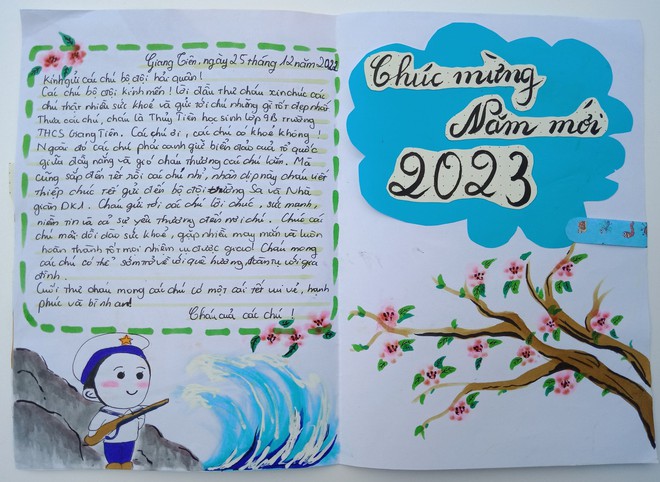 Giang Tiên, ngày 25 tháng 12 năm 2022
Kính gửi các chú bộ đội hải quân!
Các chú bộ đội kính mến! Lời đầu thư cháu xin chúc các
chú thật nhiều sức khoẻ và gửi tới chú những gì tốt đẹp nhất
Thưa các chú, cháu là Thuỷ Tiên học sinh lớp 9B trường
THCS Giang Tiên. Các chú ơi, các chú có khoẻ không!
Ngoài đó các chú phải canh giữ biển đảo của tổ quốc
giữa đầy nắng và gió cháu thương các chú lắm. Mà
cũng sắp đến tết rồi các chú nhỉ, nhân dịp này cháu viết
thiếp chúc tết gửi đến bộ đội trường Sa và Nhà
giàn DK1. Cháu gửi tới các chú lời chúc, sức mạnh,
niềm tin và cả sự yêu thương đến với chú. Chúc các
chú mãi dồi dào sức khoẻ, gặp nhiều may mắn và luôn
hoàn thành tốt mọi nhiệm vụ được giao! Cháu mong
các chú có thể sớm trở về với quê hương, đoàn tụ với gia
đình.
Cuối thư cháu mong các chú có một cái tết vui vẻ, hạnh
phúc và bình an!
Cháu của các chú!
Chúc mừng
Năm mới
2023